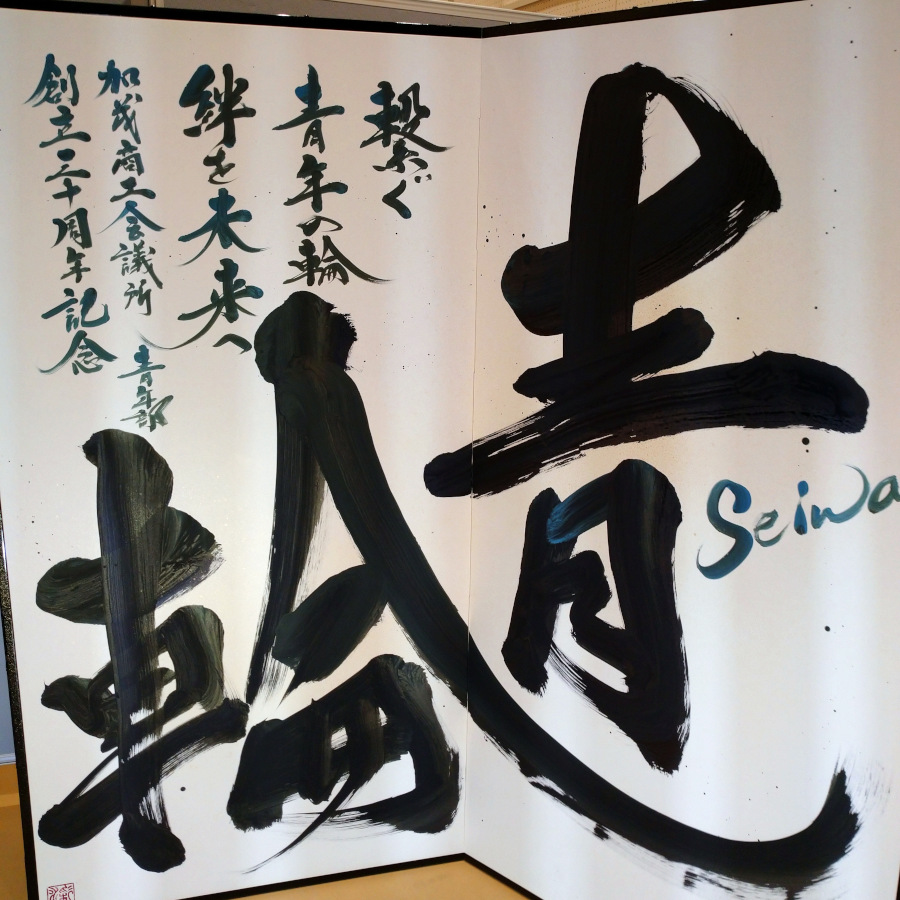 青輪
Seiwa
繋ぐ
青年の輪
絆を未来へ
加茂商工会議所 青年部
創立三十周年記念